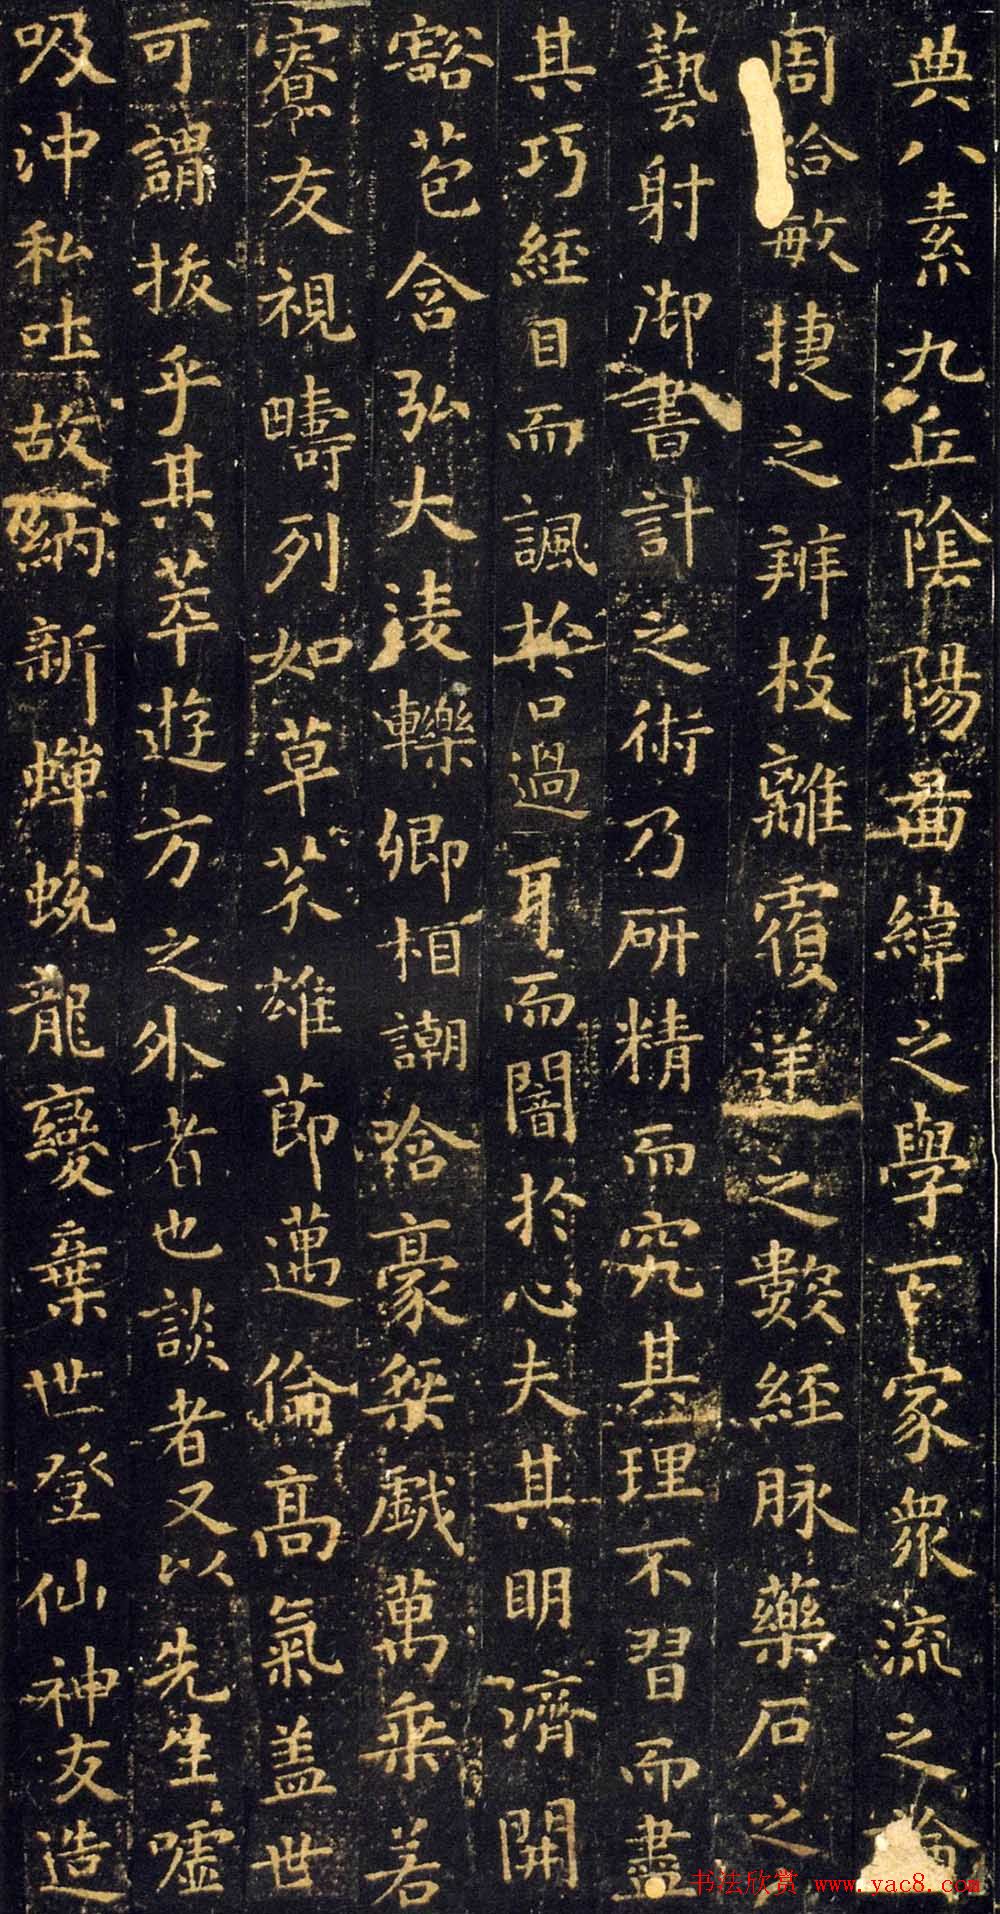 典八素九丘陰陽啚緯之學百家衆流之論
周給敏捷之辨枝離覆逆之數經脉藥石之
藝射御書計之術乃研精而究其理不習而盡
其巧經目而諷於口過耳而闇於心夫其明濟開
豁苞含弘大淩轢卿相謿哈豪桀戲萬乘若
寮友視疇列如草芥雄節邁倫高氣盖世
可謂拔乎其萃遊方之外者也談者又以先生噓
吸沖和吐故納新蟬蛻龍變棄世登仙神友造
书法欣赏 www.yac8.com